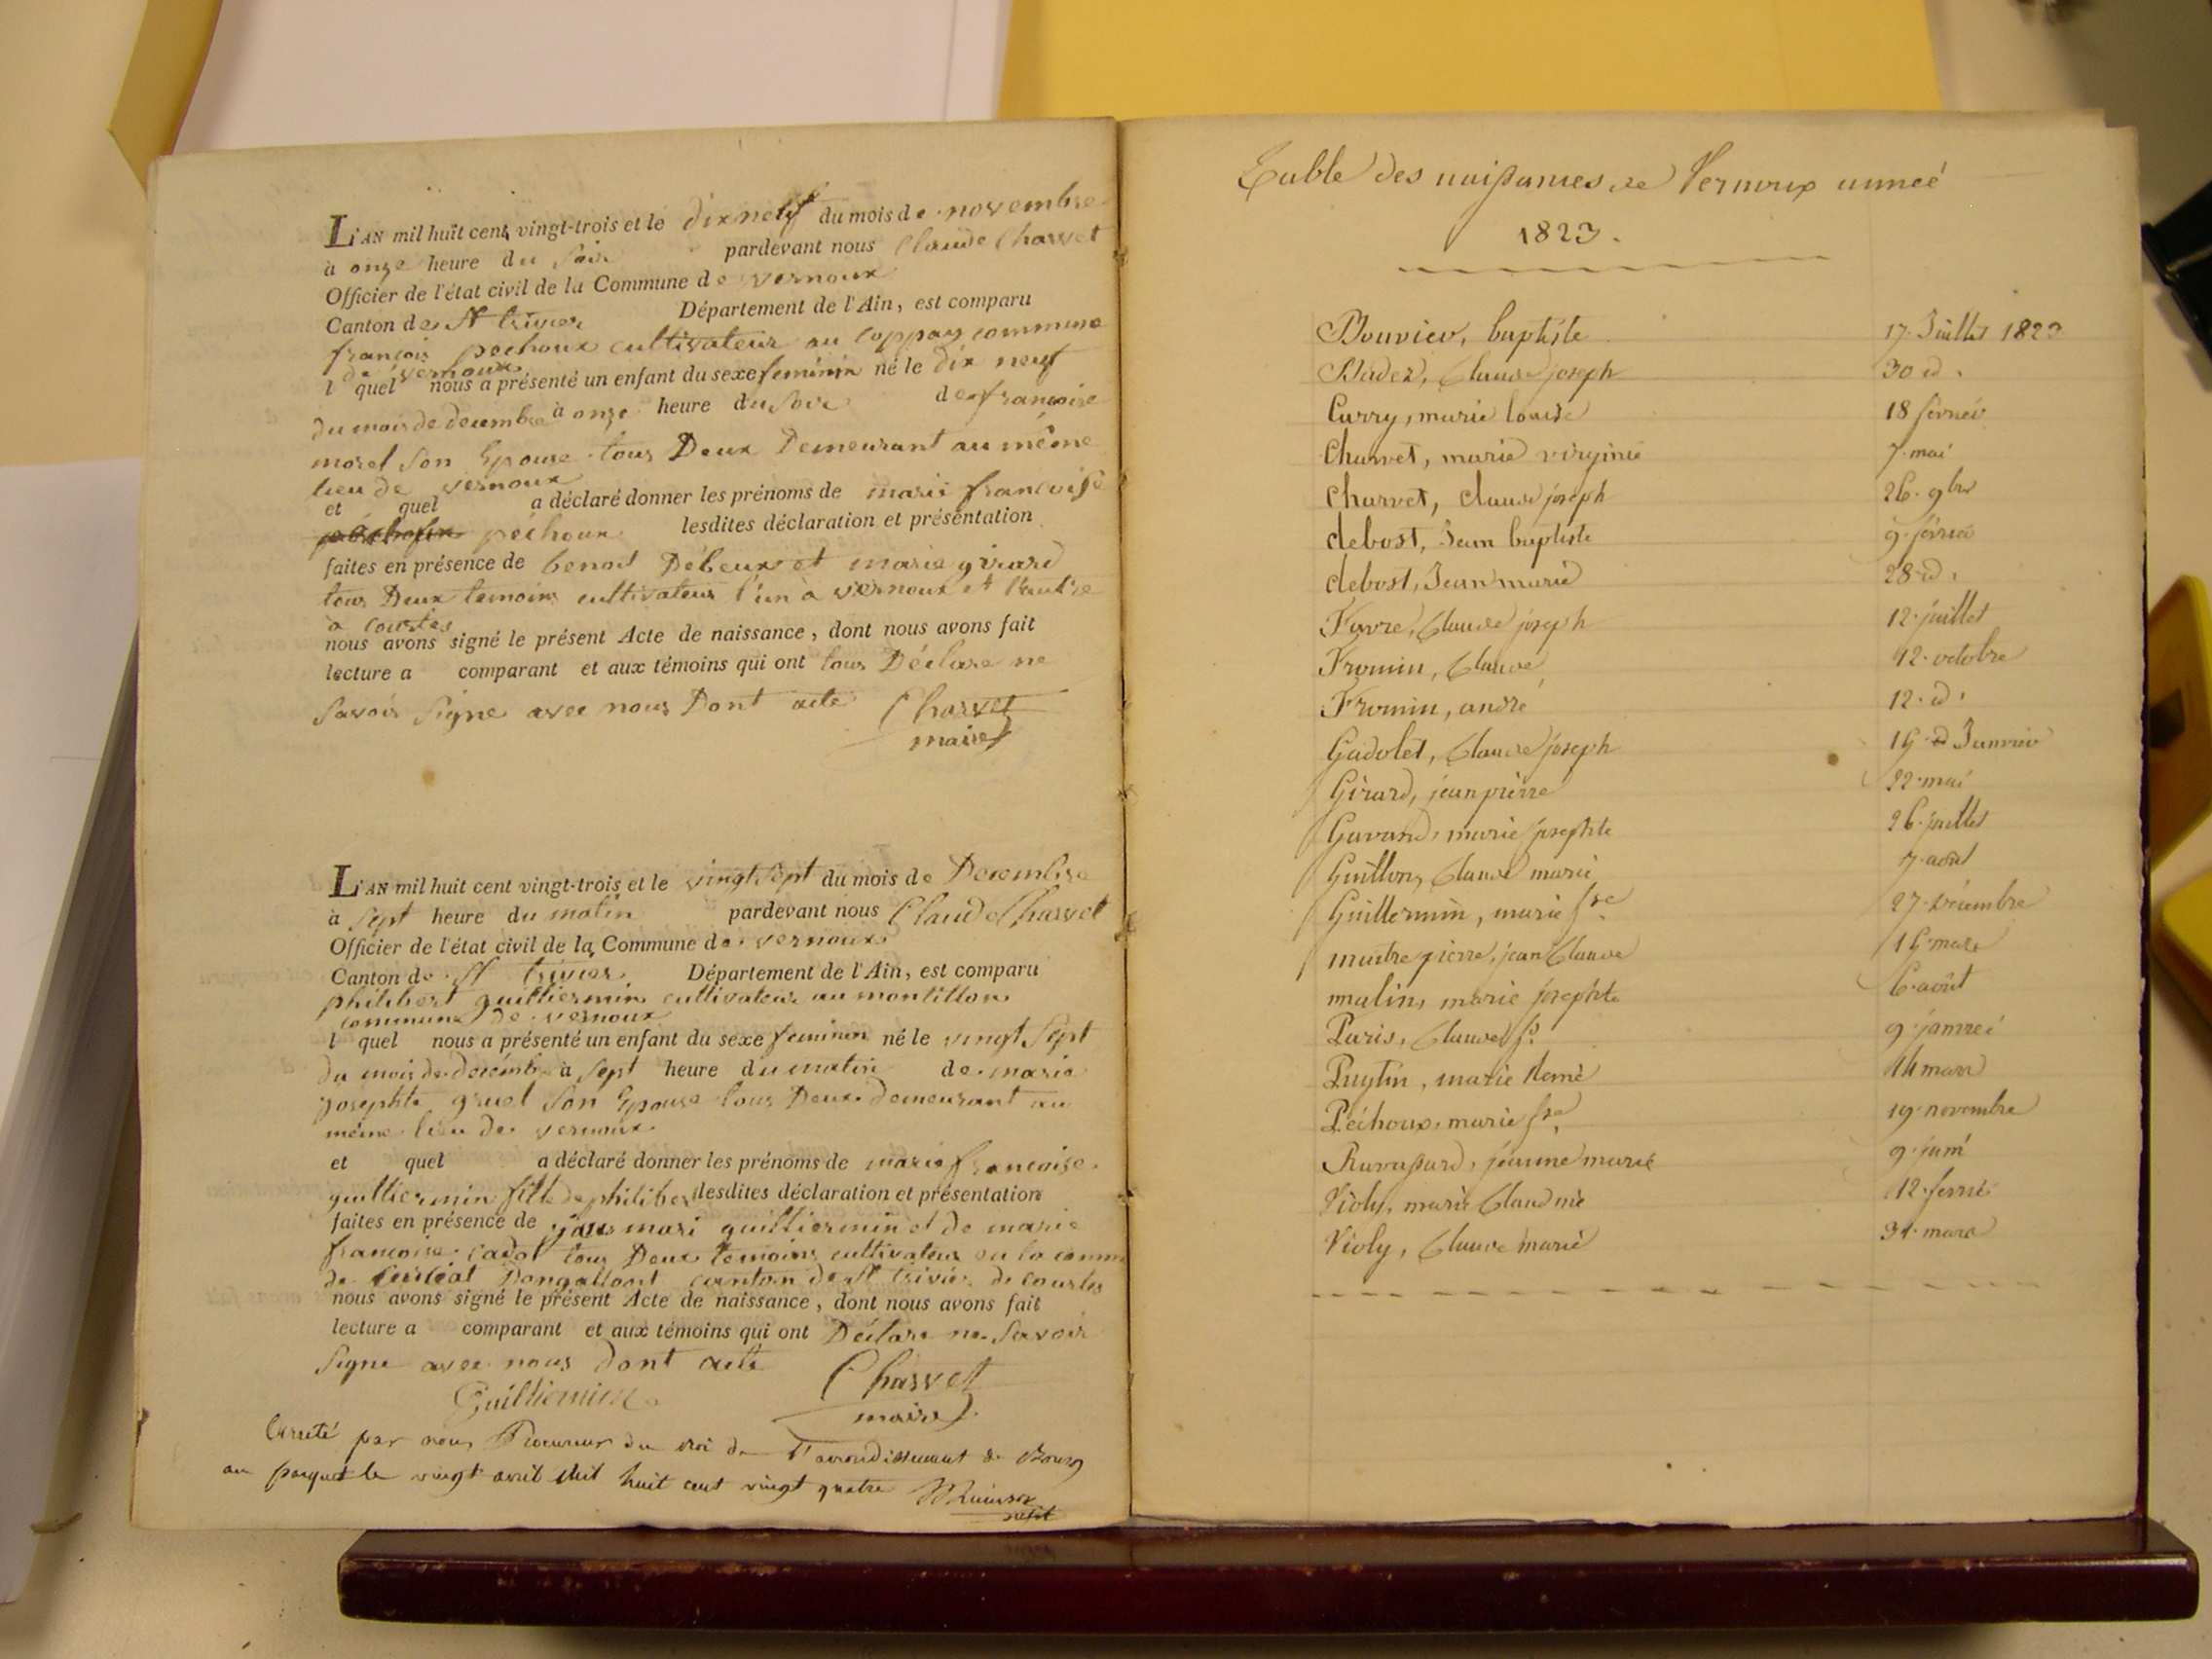 L'AN mil huit cent vingt-trois et le dix neuf du mois de novembre
à onze heure du Soir pardevant nous Claude Charvet
Officier de l'état civil de la Commune de vernoux
Canton de St trivier Département de l'Ain, est comparu
françois pechoux cultivateur au coppay commune
de vernoux
l quel nous a présenté un enfant du sexe feminin né le dix neuf
du mois de decembre à onze heure du Soir de françoise
morel Son Epouse tous Deux Demeurant au même
lieu de vernoux
et quel a déclaré donner les prénoms de marie françoise
péchoux lesdites déclaration et présentation
faites en présence de benoit Debeux et marie girard
tous Deux temoins cultivateurs l'un à vernoux et l'autre
a courtes
nous avons signé le présent Acte de naissance, dont nous avons fait
lecture a comparant et aux témoins qui ont tous Déclare ne
Savoir Signe avec nous Dont acte Charvet
maire
L'AN mil huit cent vingt-trois et le vingt Sept du mois de Decembre
à Sept heure du matin pardevant nous Claude Charvet
Officier de l'état civil de la Commune de vernoux
Canton de St trivier Département de l'Ain, est comparu
philibert guilliermin cultivateur au montillon
commune de vernoux
l quel nous a présenté un enfant du sexe feminin né le vingt Sept
du mois de decembre à Sept heure du matin de marie
josephte gruel Son Epouse tous Deux demeurant au
même lieu de vernoux
et quel a déclaré donner les prénoms de marie françoise
guilliermin fille de philibert lesdites déclaration et présentation
faites en présence de mari guilliermin et de marie
françoise cadot tous Deux temoins cultivateur
de canton de St trivier de courtes
nous avons signé le présent Acte de naissance, dont nous avons fait
lecture a comparant et aux témoins qui ont Déclare ne Savoir
Signe avec nous Dont acte Charvet
Guilliermin maire
par nous Procureur du roi de l'arrondissement de Bourg
au parquet le vingt avril mil huit cent vingt quatre
Table des naissances de Vernoux année
1823.
Bouvier, baptiste 17. Juillet 1823
Badez, Claude joseph 30 d.
Curry, marie louise 18 février
Charvet, marie virginie 7. mai
Charvet, claude joseph 26. 9bre
debost, Jean baptiste 9. février
debost, Jean marie 28. d.
Favre, Claude joseph 12. juillet
Fromin, Claude 12. octobre
Fromin, andré 12. d.
Gadolet, Claude joseph 19. Janvier
Girard, jean pierre 22. mai
Gavand, marie josephte 26. juillet
Guillon, Claude marie 7. août
Guillermin, marie fse 27. Décembre
maitre pierre, jean Claude 19. mars
malin, marie josephte 6. août
Paris, Claude fs 9. janvier
Puytin, marie 14 mars
Péchoux, marie fse 19. novembre
Ravassard, jeanne marie 9. juin
Violy, marie Claudine 12. fevrie
Violy, Claude marie 31. mars